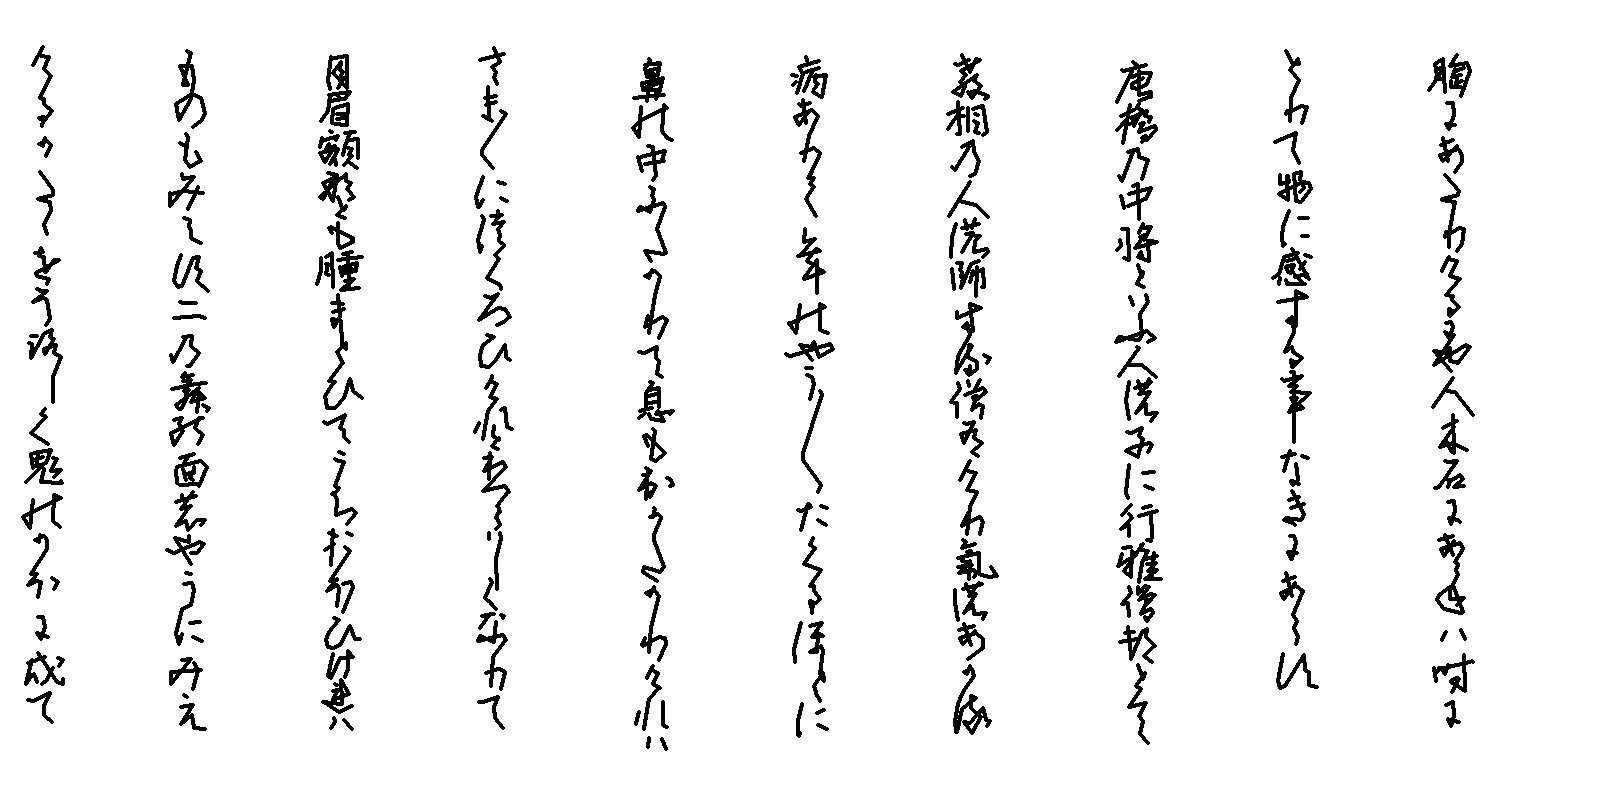 胸にあたりけるにや人木石にあらねは時に
とりて物に感する事なきにあらす
唐橋の中将といふ人の子に行雅僧都とて
教相の人の師する僧有けり氣のあかる
病ありて年のやう〱たくるほとに
鼻の中ふたかりて息も出かたかりけれは
さま〱につくろひけれとわつらはしくなりて
目眉額なとも腫まとひてうちおほひけれは
ものもみえす二の舞の面のやうにみえ
けるかたゝをそろしく鬼のかほに成て